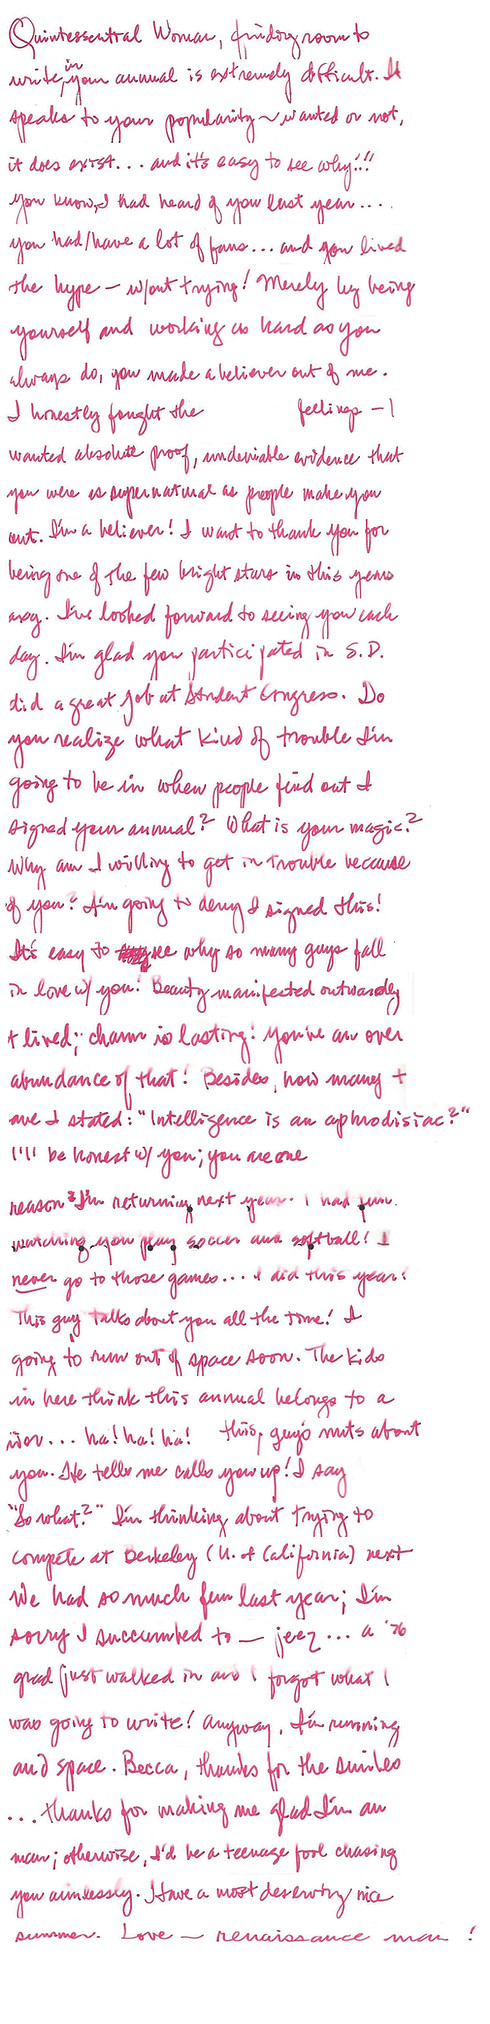 Quintessential Woman, finding room to
write, in your annual is extremely difficult. It
speaks to your popularity ~ wanted or not,
it does exist... and it's easy to see why!!!
You know, I had heard of you last year....
you had/have a lot of fans... and you lived
the hype – w/out trying! Merely by being
yourself and working as hard as you
always do, you made a believer out of me.
I honestly fought the feelings – I
wanted absolute proof, undeniable evidence that
you were as supernatural as people make you
out. I'm a believer! I want to thank you for
being one of the few bright stars in this years
I've looked forward to seeing you each
day. I'm glad you participated in S.D.
did a great job at Student Congress. Do
you realize what kind of trouble I'm
going to be in when people find out I
signed your annual? What is your magic?
Why am I willing to get in trouble because
of you? I'm going to deny I signed this!
It's easy to see why so many guys fall
in love w/ you! Beauty manifested outwardly
+ lived; charm is lasting! You've an over
abundance of that! Besides, how many t
me I stated: "Intelligence is an aphrodisiac?"
I'll be honest w/ you; you are one
reason I'm returning next year. I had fun
watching you play soccer and softball! I
never go to those games... I did this year!
This guy talks about you all the time! I
going to run out of space soon. The kids
in here think this annual belongs to a
... ha! ha! ha! this guy's nuts about
you. He tells me calls you up! I say
"So what?" I'm thinking about trying to
compete at Berkeley (U. of California) next
We had so much fun last year; I'm
sorry I succumbed to — jeez... a '76
grad just walked in and I forgot what I
was going to write! Anyway, I'm running
and space. Becca, thanks for the smiles
... thanks for making me glad I'm an
man; otherwise, I'd be a teenage fool chasing
you aimlessly. Have a most deserving nice
summer. Love ~ renaissance man!